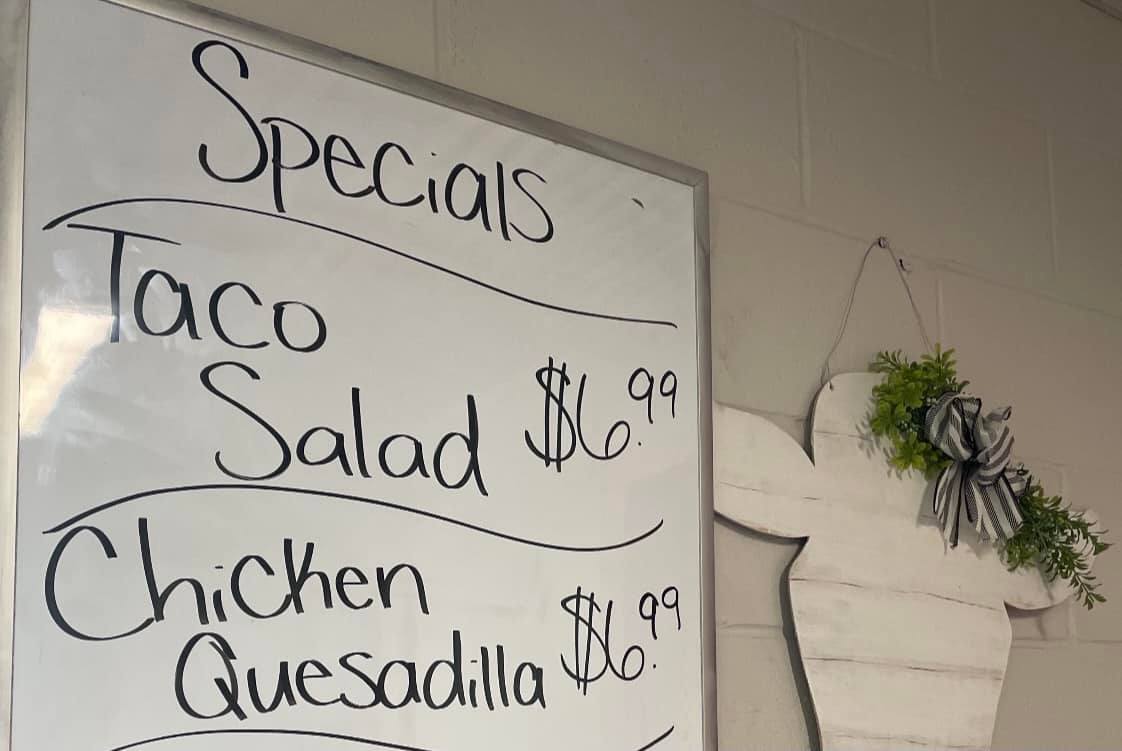 Specials
Taco
Salad $6.99
Chicken
Quesadilla $6.99